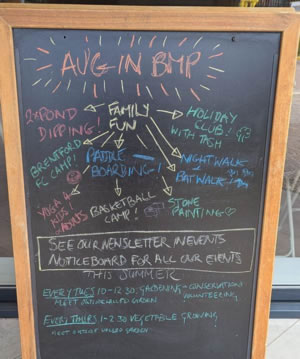 AUG IN BMP
2x POND
DIPPING!
FAMILY
FUN
HOLIDAY
CLUB!
WITH TASH
BRENTFORD
FC CAMP!
PADDLE
BOARDING!
NIGHTWALK
BATWALK
YOGA 4
KIDS!
ADULTS
BASKETBALL
CAMP!
STONE
PAINTING
SEE OUR NEWSLETTER IN EVENTS
NOTICEBOARD FOR ALL OUR EVENTS
THIS SUMMER
EVERY TUES 10-12:30: GARDENING - CONSERVATION
MEET WALLED GARDEN VOLUNTEERING
EVERY THURS 1-2.30 VEGETABLE GROWING
MEET WALLED GARDEN